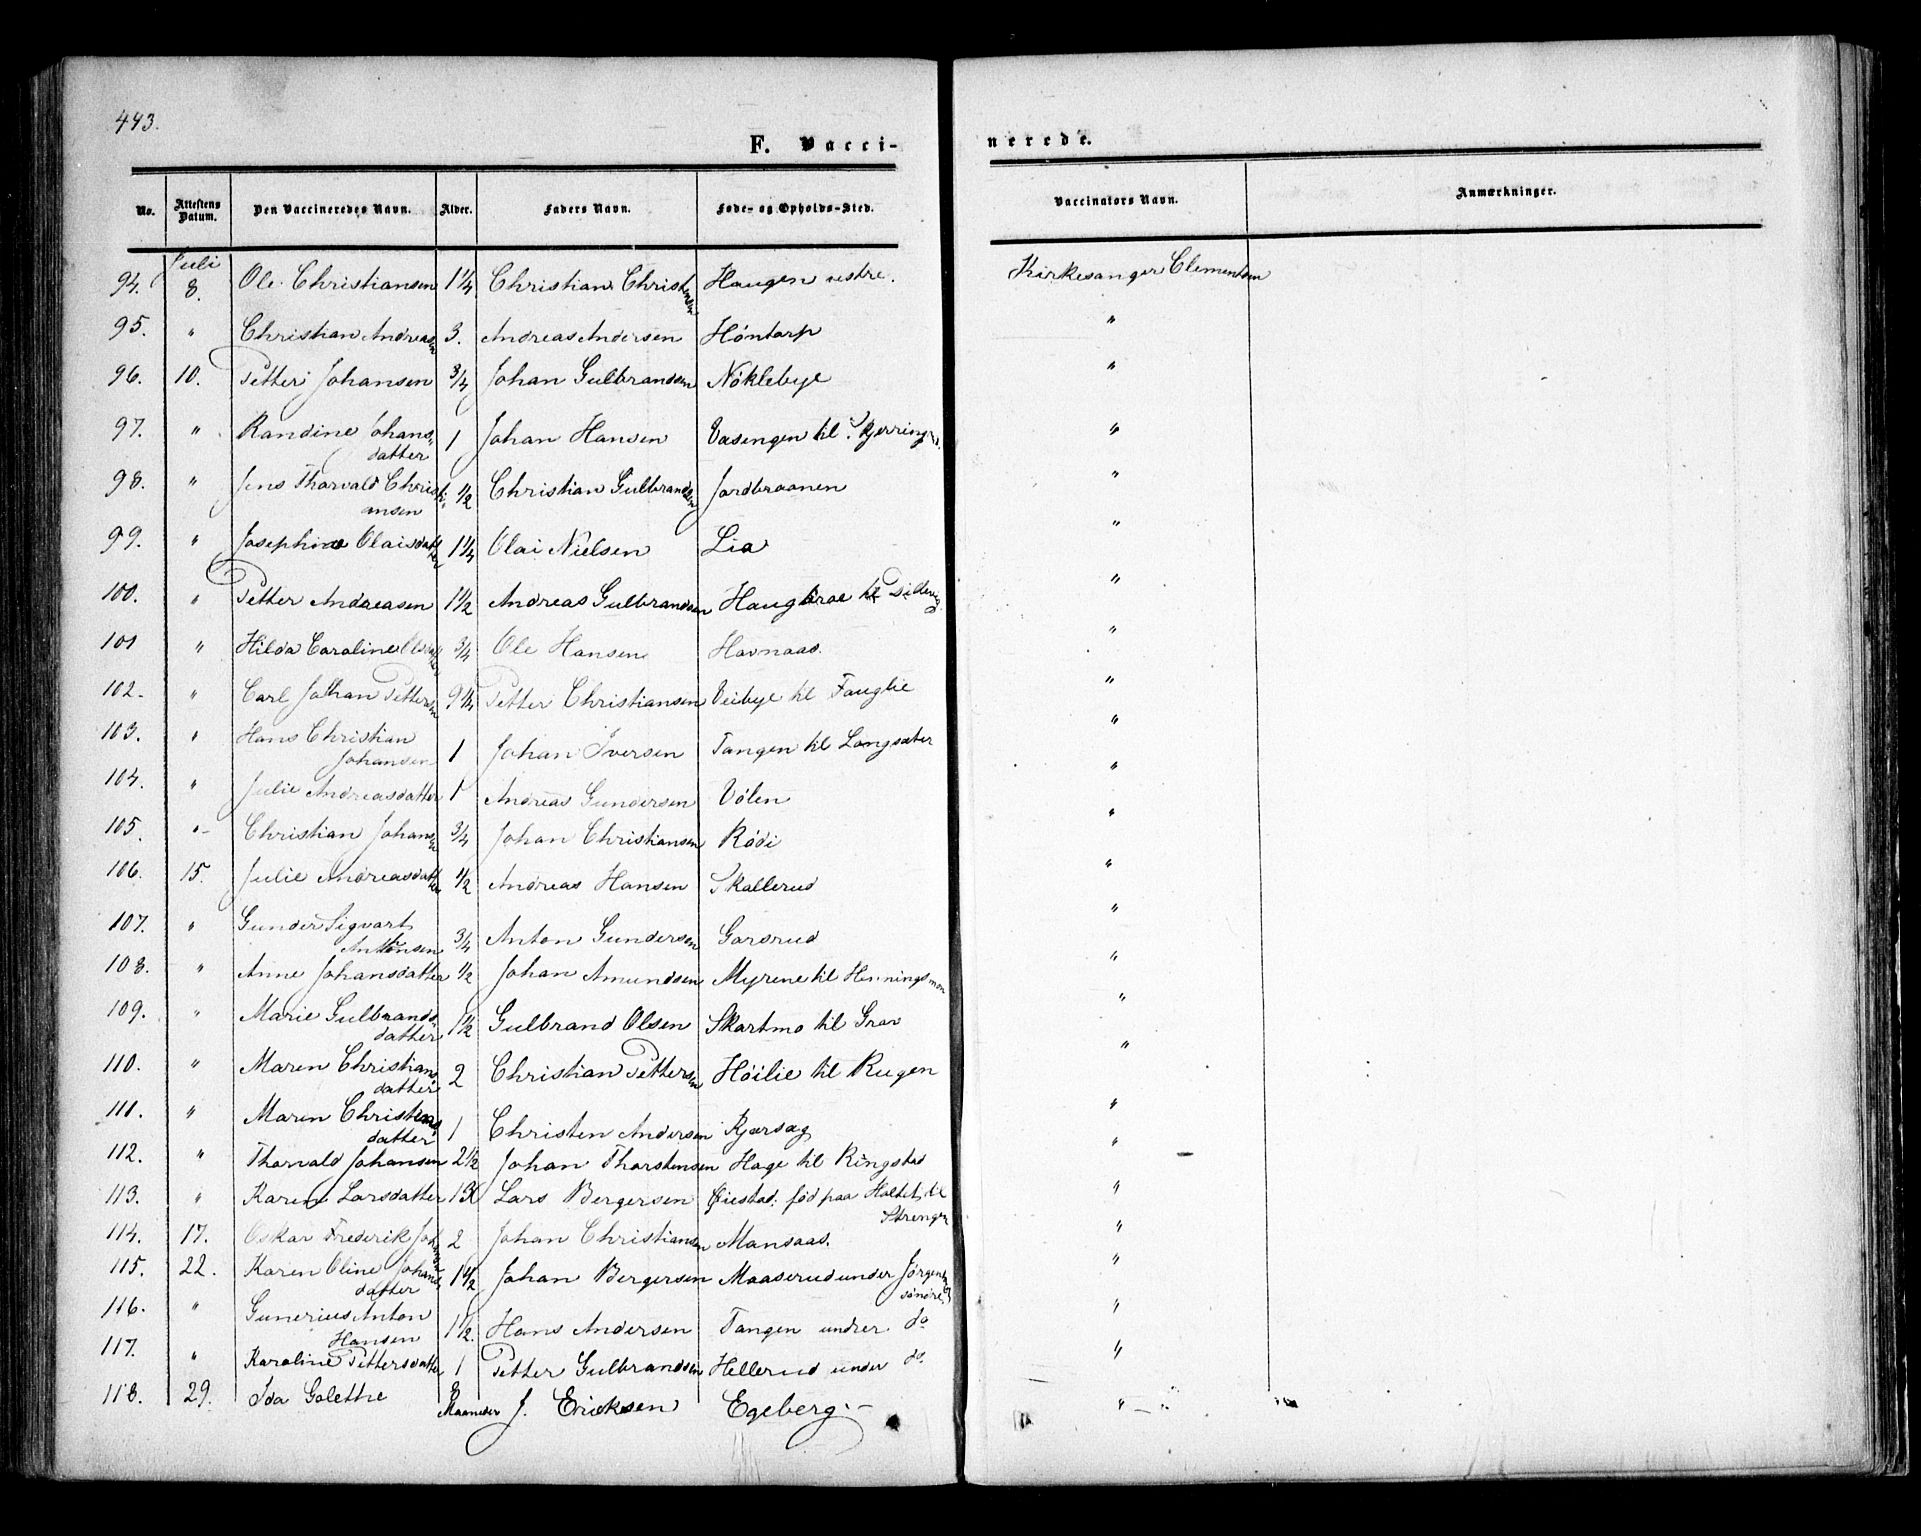 443.
F. Vacci-
nerede.
No. | Attestens Datum. | Den Vaccineredes Navn. | Alder. | Faders Navn. | Føde- og Opholds-Sted. | Vaccinators Navn. | Anmærkninger.
94. | Juli 8. | Ole Christiansen | 1 1/4 | Christian Christensen | Haugen vestre. | Kirkesanger Clementsen
95. | " | Christian Andreasen | 3. | Andreas Andersen | Høntorp | "
96. | 10. | Petter Johansen | 3/4 | Johan Gulbrandsen | Nøklebye | "
97. | " | Randine Johans-datter | 1 | Johan Hansen | Vasengen til | "
98. | " | Jens Thorvald Christi-ansen | 1/2 | Christian Gulbrandsen | Jordbraanen | "
99. | " | Josephine Olaisdatter | 1 1/4 | Olai Nielsen | Lia | "
100. | " | Petter Andreasen | 1 1/2 | Andreas Gulbrandsen | Haug til Dillevig. | "
101 | " | Hilda Caroline Olsdatter | 3/4 | Ole Hansen | Havnaas. | "
102. | " | Carl Johan Pettersen | 9 1/4 | Petter Christiansen | Veibye til Fauglie | "
103. | " | Hans Christian Johansen | 1 | Johan Iversen | Tangen til Langsæter | "
104. | " | Julie Andreasdatter | 1 | Andreas Gundersen | Vølen | "
105. | " | Christian Johansen | 3/4 | Johan Christiansen | Rødi | "
106. | 15. | Julie Andreasdatter | 1/2 | Andreas Hansen | Skallerud | "
107. | " | Gunder Sigvart Antonsen | 3/4 | Anton Gundersen | Garsrud | "
108. | " | Anne Johansdatter | 1/2 | Johan Amundsen | Myrene til Henningsmoen | "
109. | " | Marie Gulbrands-datter | 1 1/2 | Gulbrand Olsen | Skartmo til Grav | "
110. | " | Maren Christians-datter | 2 | Christian Pettersen | Høilie til Rugen | "
111. | " | Maren Christens-datter | 1 | Christen Andersen | Kjærsag | "
112. | " | Thorvald Johansen | 2 1/2 | Johan Thorstensen | Hage til Ringstad | "
113. | " | Karen Larsdatter | Lars Bergersen | Øiestad. fød paa Holtet til Strengen | "
114. | 17. | Oskar Frederik Johansen | 2 | Johan Christiansen | Mansaas. | "
115. | 22. | Karen Oline Johans-datter | 1 1/2 | Johan Bergersen | Maaserud under Jørgen søndre | "
116. | " | Gunerius Anton Hansen | 1 1/2. | Hans Andersen | Tangen under do | "
117. | " | Karoline Pettersdatter | 1 | Petter Gulbrandsen | Hellerud under do. | "
118. | 29. | Ida Golethe | 8 Maaneder | J. Ericksen | Egeberg.- | "